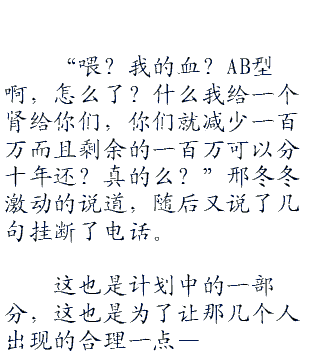 “喂？我的血？AB型
啊，怎么了？什么我给一个
肾给你们，你们就减少一百
万而且剩余的一百万可以分
十年还？真的么？”邢冬冬
激动的说道，随后又说了几
句挂断了电话。
这也是计划中的一部
分，这也是为了让那几个人
出现的合理一点—